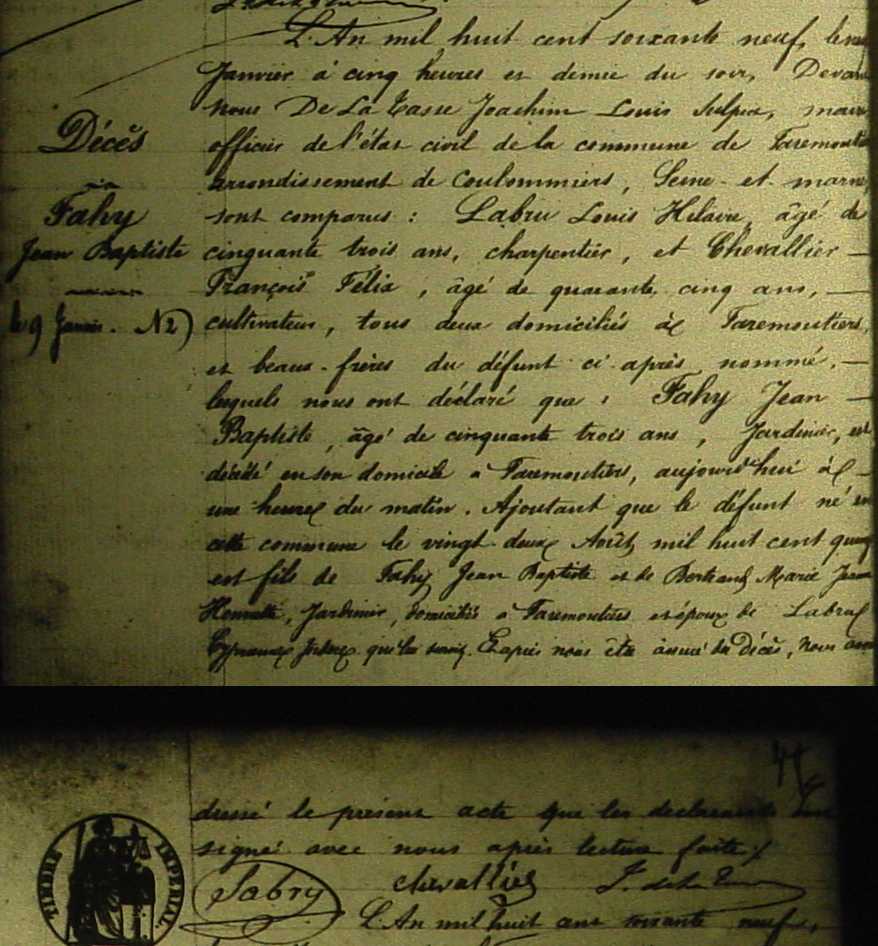 L'An mil huit cent soixante neuf, le neuf
Janvier à cinq heures et demie du soir, Devan
nous De La Tasse Joachim Louis Sulpice, maire
Décès
officier de l'état civil de la commune de Faremoutie
arrondissement de Coulommiers, Seine-et-marne,
Fahy
sont comparus : Labru Louis Hilaire, âgé de
Jean Baptiste
cinquante trois ans, charpentier, et Chevallier
François Félix, âgé de quarante cinq ans,
le 9 Janvier. N 2)
cultivateur, tous deux domiciliés à Faremoutiers,
et beaux-frères du défunt ci après nommé,
lesquels nous ont déclaré que : Fahy Jean
Baptiste, âgé de cinquante trois ans, Jardinier, est
décédé en son domicile à Faremoutiers, aujourd'hui à
une heure du matin. Ajoutant que le défunt né en
cette commune le vingt-deux Août mil huit cent quinze
est fils de Fahy Jean Baptiste et de Bertrand Marie Jeanne
Henriette, Jardinier, domiciliés à Faremoutiers et époux de
qui lui survit. Et après nous être assuré du Décès, nous avon
dressé le présent acte que les déclarants ont
signé avec nous après lecture faite ./.
TIMBRE IMPERIAL.
chevallier
L'An mil huit cent soixante neuf,